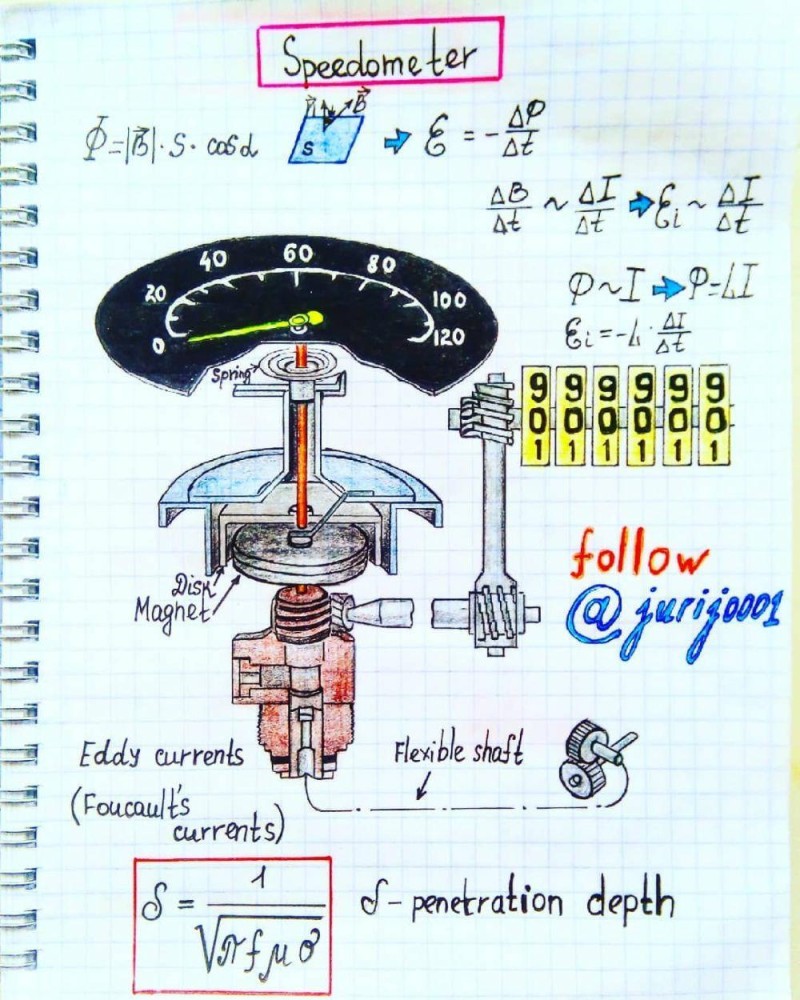 Speedometer
Φ=|B⃗|·S·cosα
n⃗ B⃗
S
ℰ = -ΔΦ/Δt
ΔB/Δt ~ ΔI/Δt ➡ ℰi ~ ΔI/Δt
Φ~I ➡ Φ=LI
ℰi=-L·ΔI/Δt
0 20 40 60 80 100 120
Spring
9 9 9 9 9 9
0 0 0 0 0 0
1 1 1 1 1 1
follow
@jurij0001
Disk
Magnet
Eddy currents
(Foucault's
currents)
Flexible shaft
δ = 1/√πfμσ
δ - penetration depth